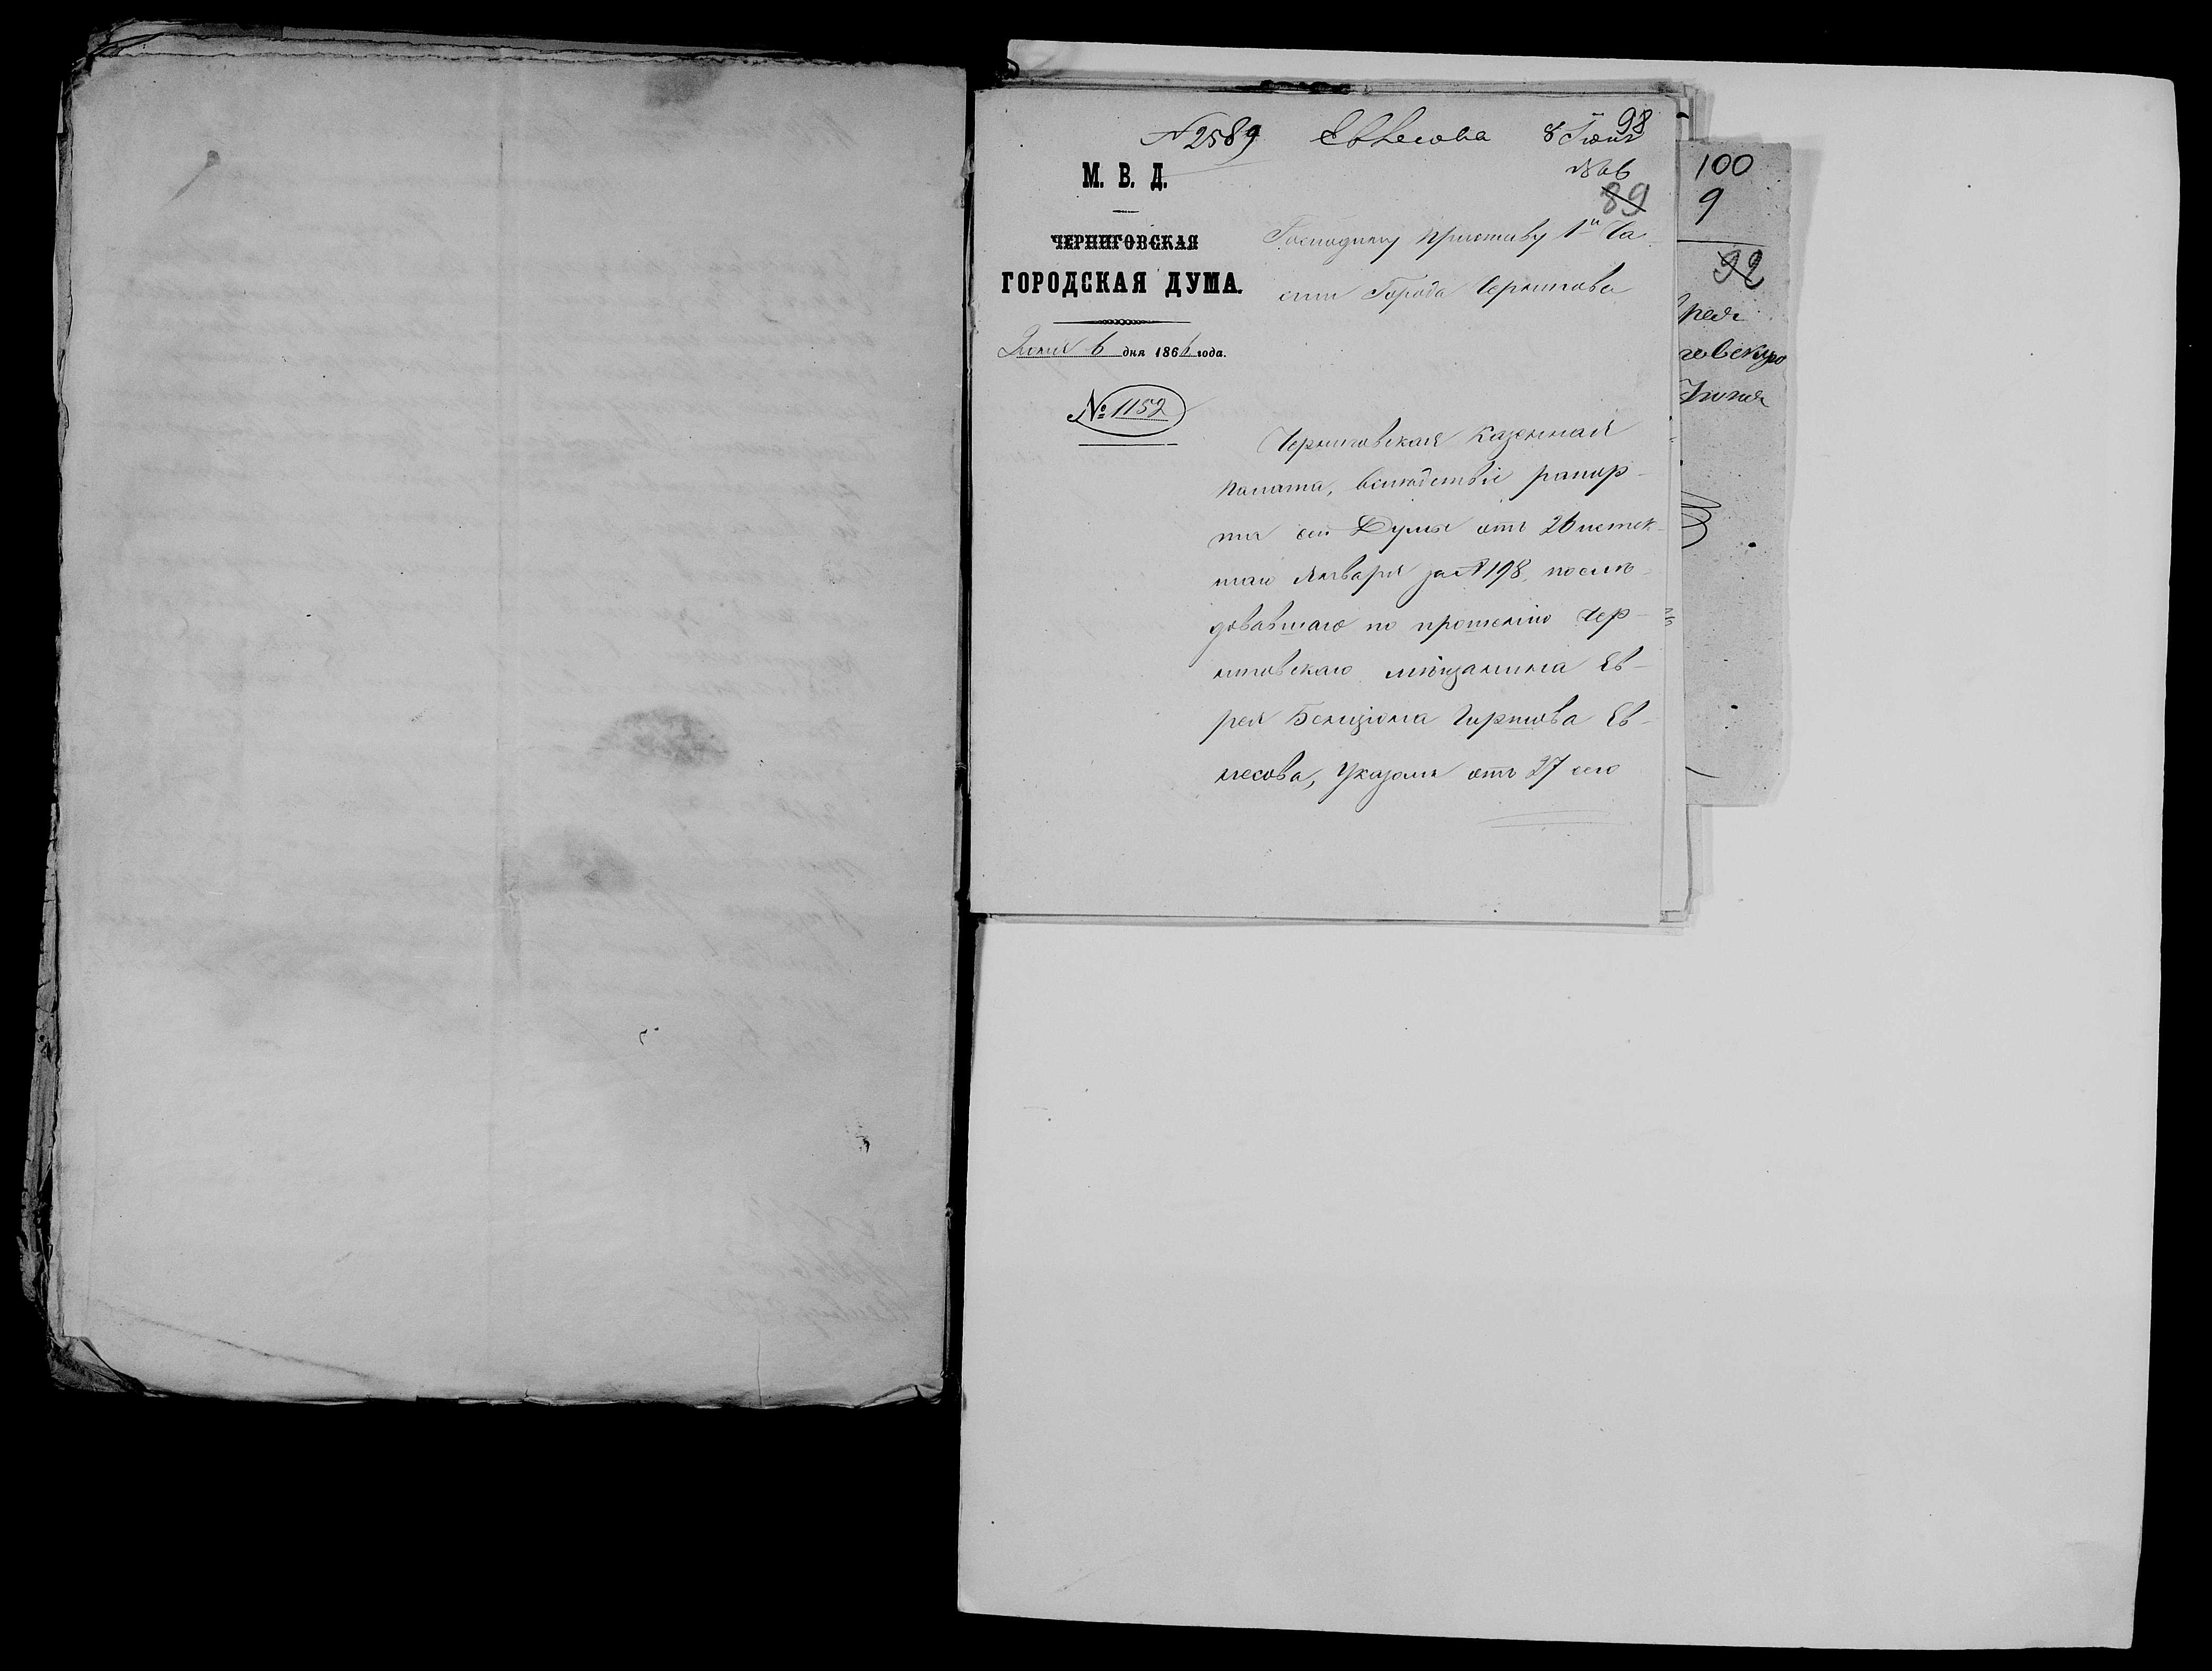 № 2589 Евнесова 8 Іюня 98
1866
89
М. В. Д.
ЧЕРНИГОВСКАЯ
ГОРОДСКАЯ ДУМА.
Іюня 6 дня 1866 года.
№ 1152
Господину Приставу 1й Ча-
сти Города Чернигова
Черниговская Казенная
Палата, вслѣдствіе рапор-
та сей Думы отъ 26 истек-
шаго Января за № 198, послѣ-
довавшаго по прошенію Чер-
ниговскаго мѣщанина Ев-
рея Бенціона Гиршова Ев-
несова, Указомъ отъ 27 сего
100
9
92
Іюня